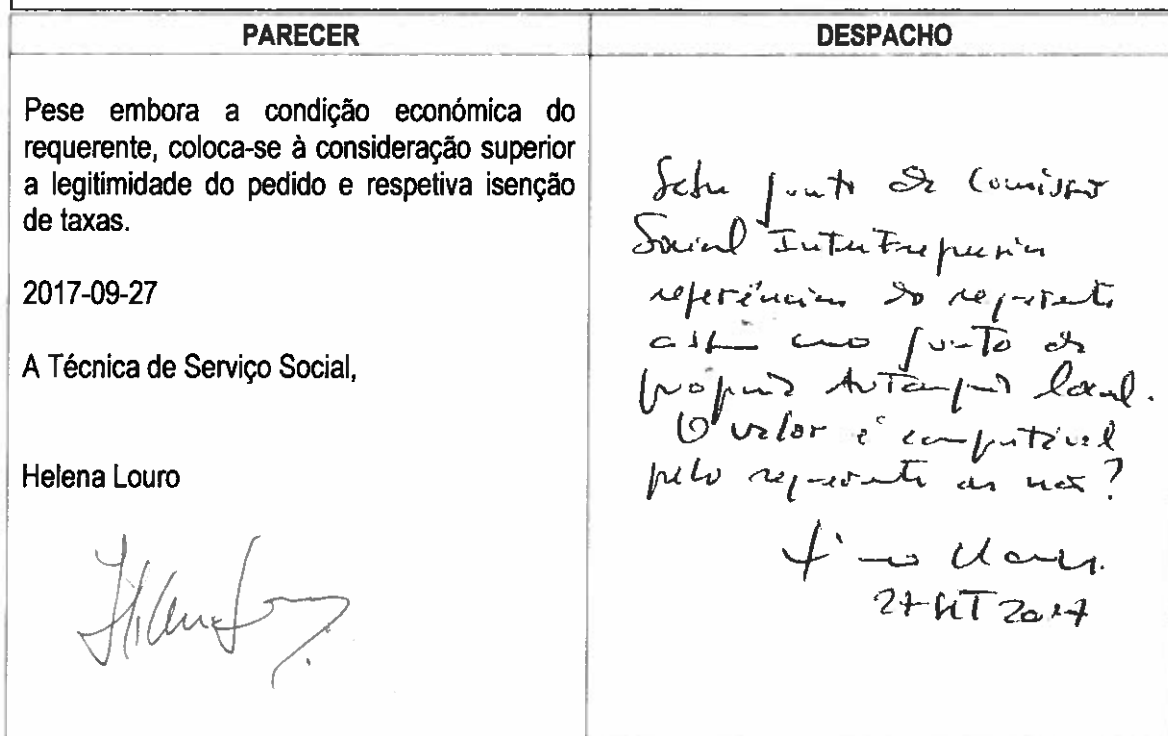 PARECER
DESPACHO
Pese embora a condição económica do
requerente, coloca-se à consideração superior
a legitimidade do pedido e respetiva isenção
de taxas.
2017-09-27
A Técnica de Serviço Social,
Helena Louro
junto da Comissão
Social
referências do requerente
assim como junto da
própria Autarquia local.
O valor é
pelo requerente ou não?
27 SET 2017